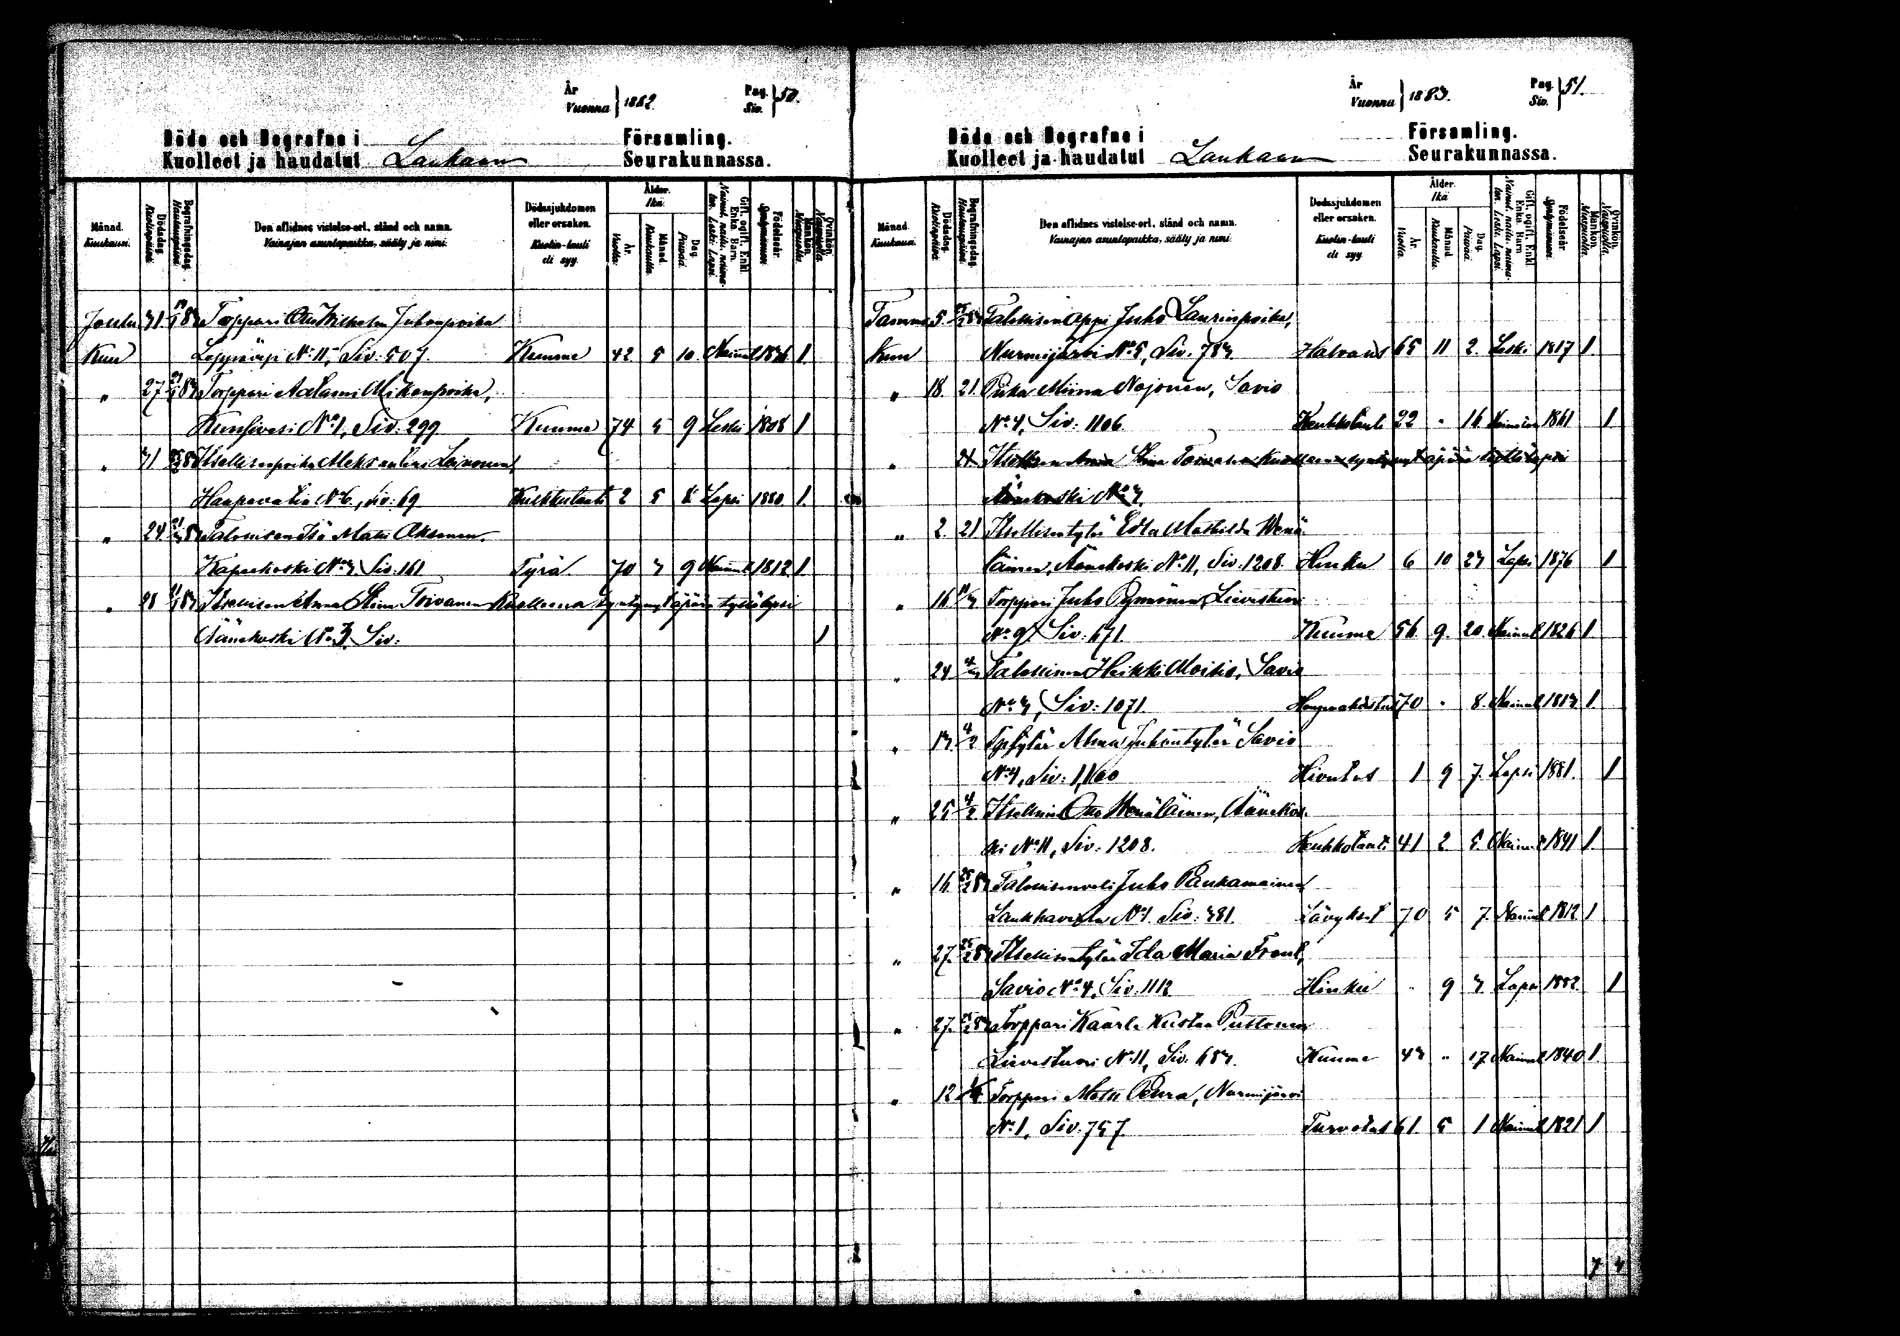 År Vuonna } 1882. Pag. Siv. } 50.
Döde och Begrafne i Församling.
Kuolleet ja haudatut Laukaan Seurakunnassa.
Månad. Kuukausi.
Dödsdag. Kuolinpäivä.
Begrafningsdag. Hautauspäivä.
Den aflidnes vistelse-ort, stånd och namn. Vainajan asuntopaikka, sääty ja nimi.
Dödssjukdomen eller orsaken. Kuolin-tauti eli syy.
Ålder. Ikä.
År. Vuotta.
Månad. Kuukautta.
Dag. Päivää.
Gift, ogift, Enkl. Enka, Barn. Nainut, naitu, naimaton, Leski, Lapsi.
Födelseår. Syntymävuosi.
Mankön. Miespuolta.
Qvinkön. Naispuolta.
Joulu 31 Torppari Otto Wilhelm Juhonpoika
Kuu No 11, Siv: 507. Kuume 42 5 10. Nainut 1
" 27 Torppari Adami Mikonpoika,
Kuusivesi No 1, Siv: 299 Kuume 74 5 9 Leski 1808 1
" 31 Itsellisenpoika Aleksanteri Leinonen
Haapavatia No 6, siv: 69 Keuhkotauti 2 5 8 Lapsi 1880 1.
" 24. Talonisen Isä Matti Oksanen.
Kapeekoski No 3, Siv. 161 Tyrä. 70 3 9 Nainut 1812 1
" 28 Itsellisen Anna Stiina Toivanen Kuolleena syntynyt äpärä tyttölapsi
Äänekoski No 3. Siv: 1
År Vuonna } 1883. Pag. Siv. } 51.
Döde och Begrafne i Församling.
Kuolleet ja haudatut Laukaan Seurakunnassa.
Månad. Kuukausi.
Dödsdag. Kuolinpäivä.
Begrafningsdag. Hautauspäivä.
Den aflidnes vistelse-ort, stånd och namn. Vainajan asuntopaikka, sääty ja nimi.
Dödssjukdomen eller orsaken. Kuolin-tauti eli syy.
Ålder. Ikä.
År. Vuotta.
Månad. Kuukautta.
Dag. Päivää.
Gift, ogift, Enkl. Enka, Barn. Nainut, naitu, naimaton, Leski, Lapsi.
Födelseår. Syntymävuosi.
Mankön. Miespuolta.
Qvinkön. Naispuolta.
Tammi 5. Talollisen appi Juho Laurinpoika,
Kuu Nurmijärvi No 5, Siv. 783. Halvaus 65 11 2. Leski 1817 1
" 18. 21. Piika Miina Nojonen, Savio
No 4, Siv: 1106. Keuhkotauti 22 " 16 1861 1
" 21 Itsellisen Anna Stiina Toivanen Kuolleena syntynyt äpärä tyttölapsi
Äänekoski No 3
" 2. 21 Itsellisentytär Edla Mathilda Wenä
läinen, Äänekoski No 11, Siv. 1208. Hinku 6 10 23 Lapsi 1876 1
" 16 Torppari Juho Rynnänen, Lievestuore
No 9, Siv: 671. Kuume 56. 9. 20. Nainut 1826 1
" 24 Talollinen Heikki Moisio, Savio
No 3, Siv: 1071. 70 " 8. Nainut 1813 1.
" 13. 4/2 Alma Juhontytär Savio
No 4, Siv: 1100 Hivutus 1 9 7. Lapsi 1881. 1
" 25 4/2 Itsellinen Otto Wenäläinen, Äänekos.
ki No 11, Siv: 1208. Keuhkotauti 41 2. 5. Nainut 1841 1
" 16. Juho Paukamainen
Laukkavirta No 1. Siv: 381. 70 5 7. Nainut 1812 1
" 27. Itsellisentytär Ida Maria Frant,
Savio No 4, Siv: 1112 Hinku " 9 3. Lapsi 1882 1
" 27. Torppari Kaarle Kustaa Puttonen
Lievestuore No 11, Siv. 683. Kuume 43 " 17 Nainut 1840 1.
" 12 Torppari Matti Peura, Nurmijärvi
No 1, Siv. 757. Turvotus 61. 5 1 Nainut 1821 1
7 4